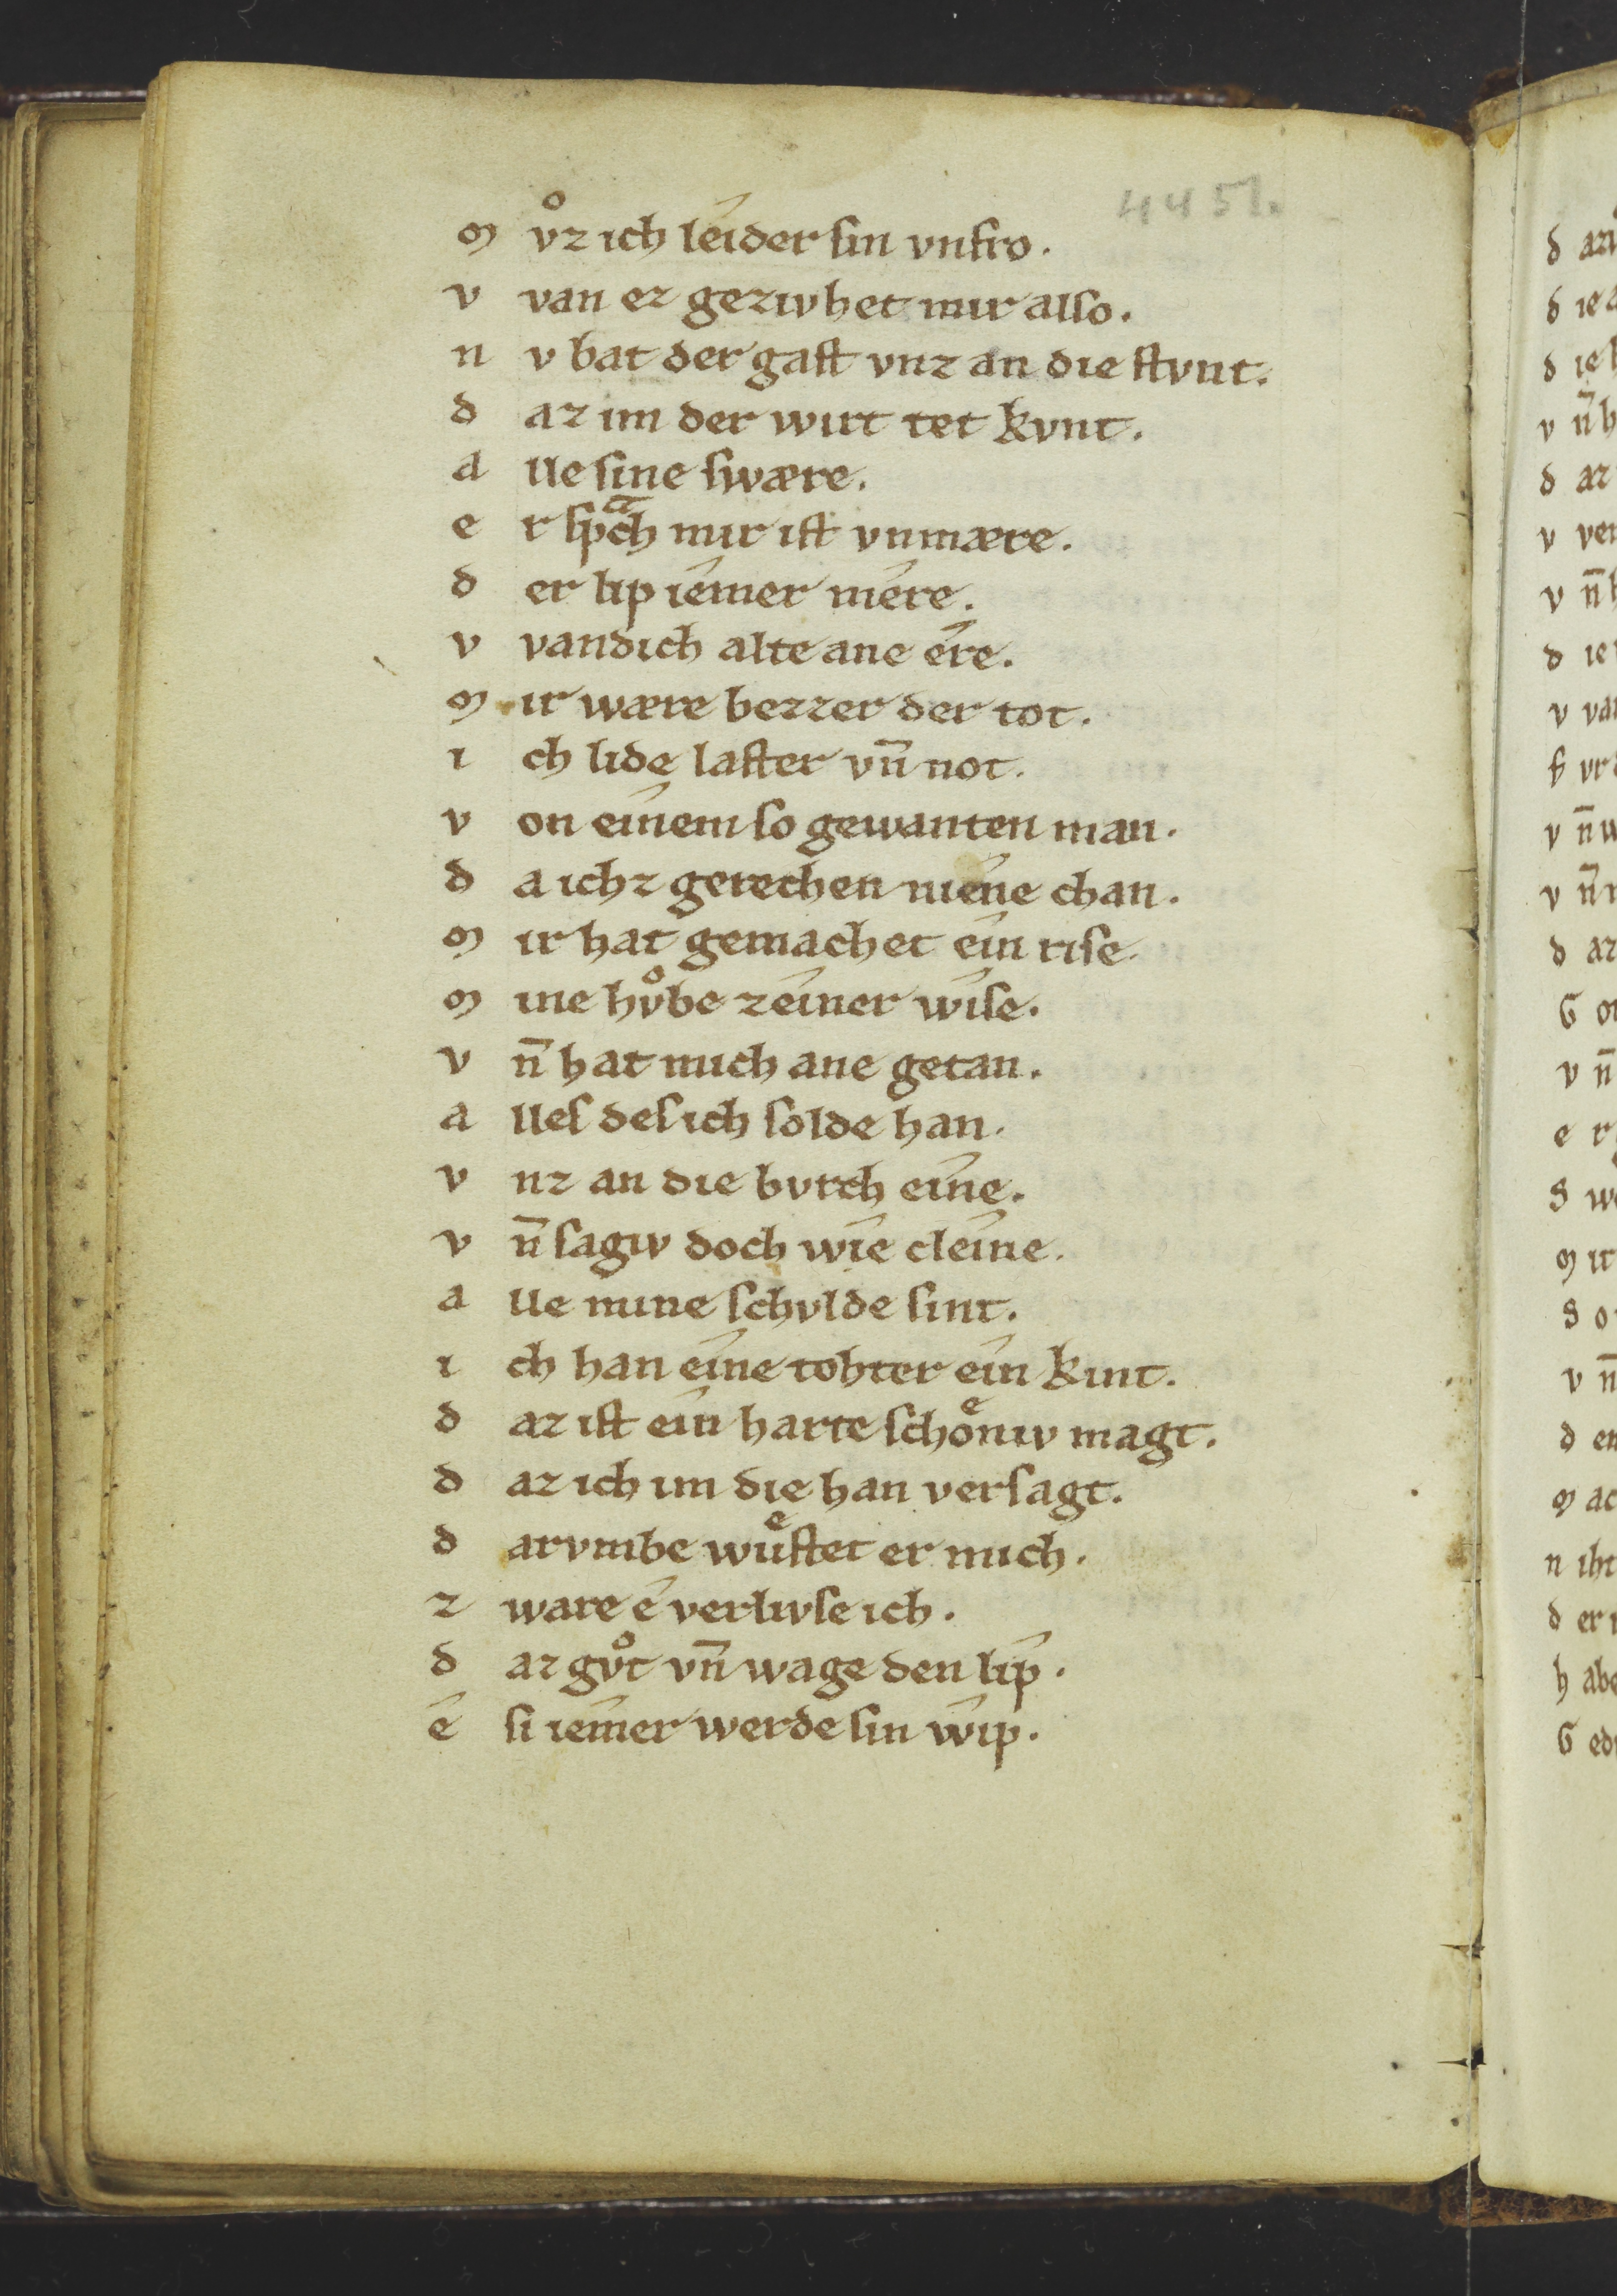 4451.
m vͦz ich leíder ſin vnfro.
v van ez gezivhet mir alſo.
n v bat der gaſt vnz an die ſtvnt.
d az im der wirt tet kvnt.
a lle ſine ſwære.
e r ſpͣch mir iſt vnmære.
d er lip íemer mére.
v vandich alte ane ére.
m ir wære bezzer der tot.
i ch lide laſter vn̄ not.
v on eínem ſo gewanten man.
d a ichz gerechen níene chan.
m ir hat gemachet eín riſe.
m ine hvͦbe zeíner wíſe.
v n̄ hat mich ane getan.
a lleſ deſ ich ſolde han.
v nz an die bvrch eíne.
v n̄ ſagiv doch wíe cleíne.
a lle mine ſchvlde ſint.
i ch han eíne tohter eín kint.
d az iſt eín harte ſchoͤniv magt.
d az ich im die han verſagt.
d arvmbe wuͤſtet er mich.
z ware é verlivſe ich.
d az gvͦt vn̄ wage den líp.
é ſi íemer werde ſin wíp.